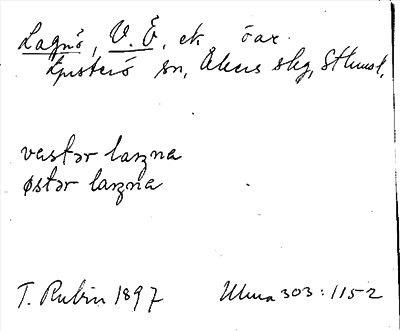 Lagnö, V. Ö, ek öar.
Ljusterö sn, Åkers skg, Sthmsl.
vastər laŋna
østər laŋna
T. Rubin 1897 Ulma 303:115-2